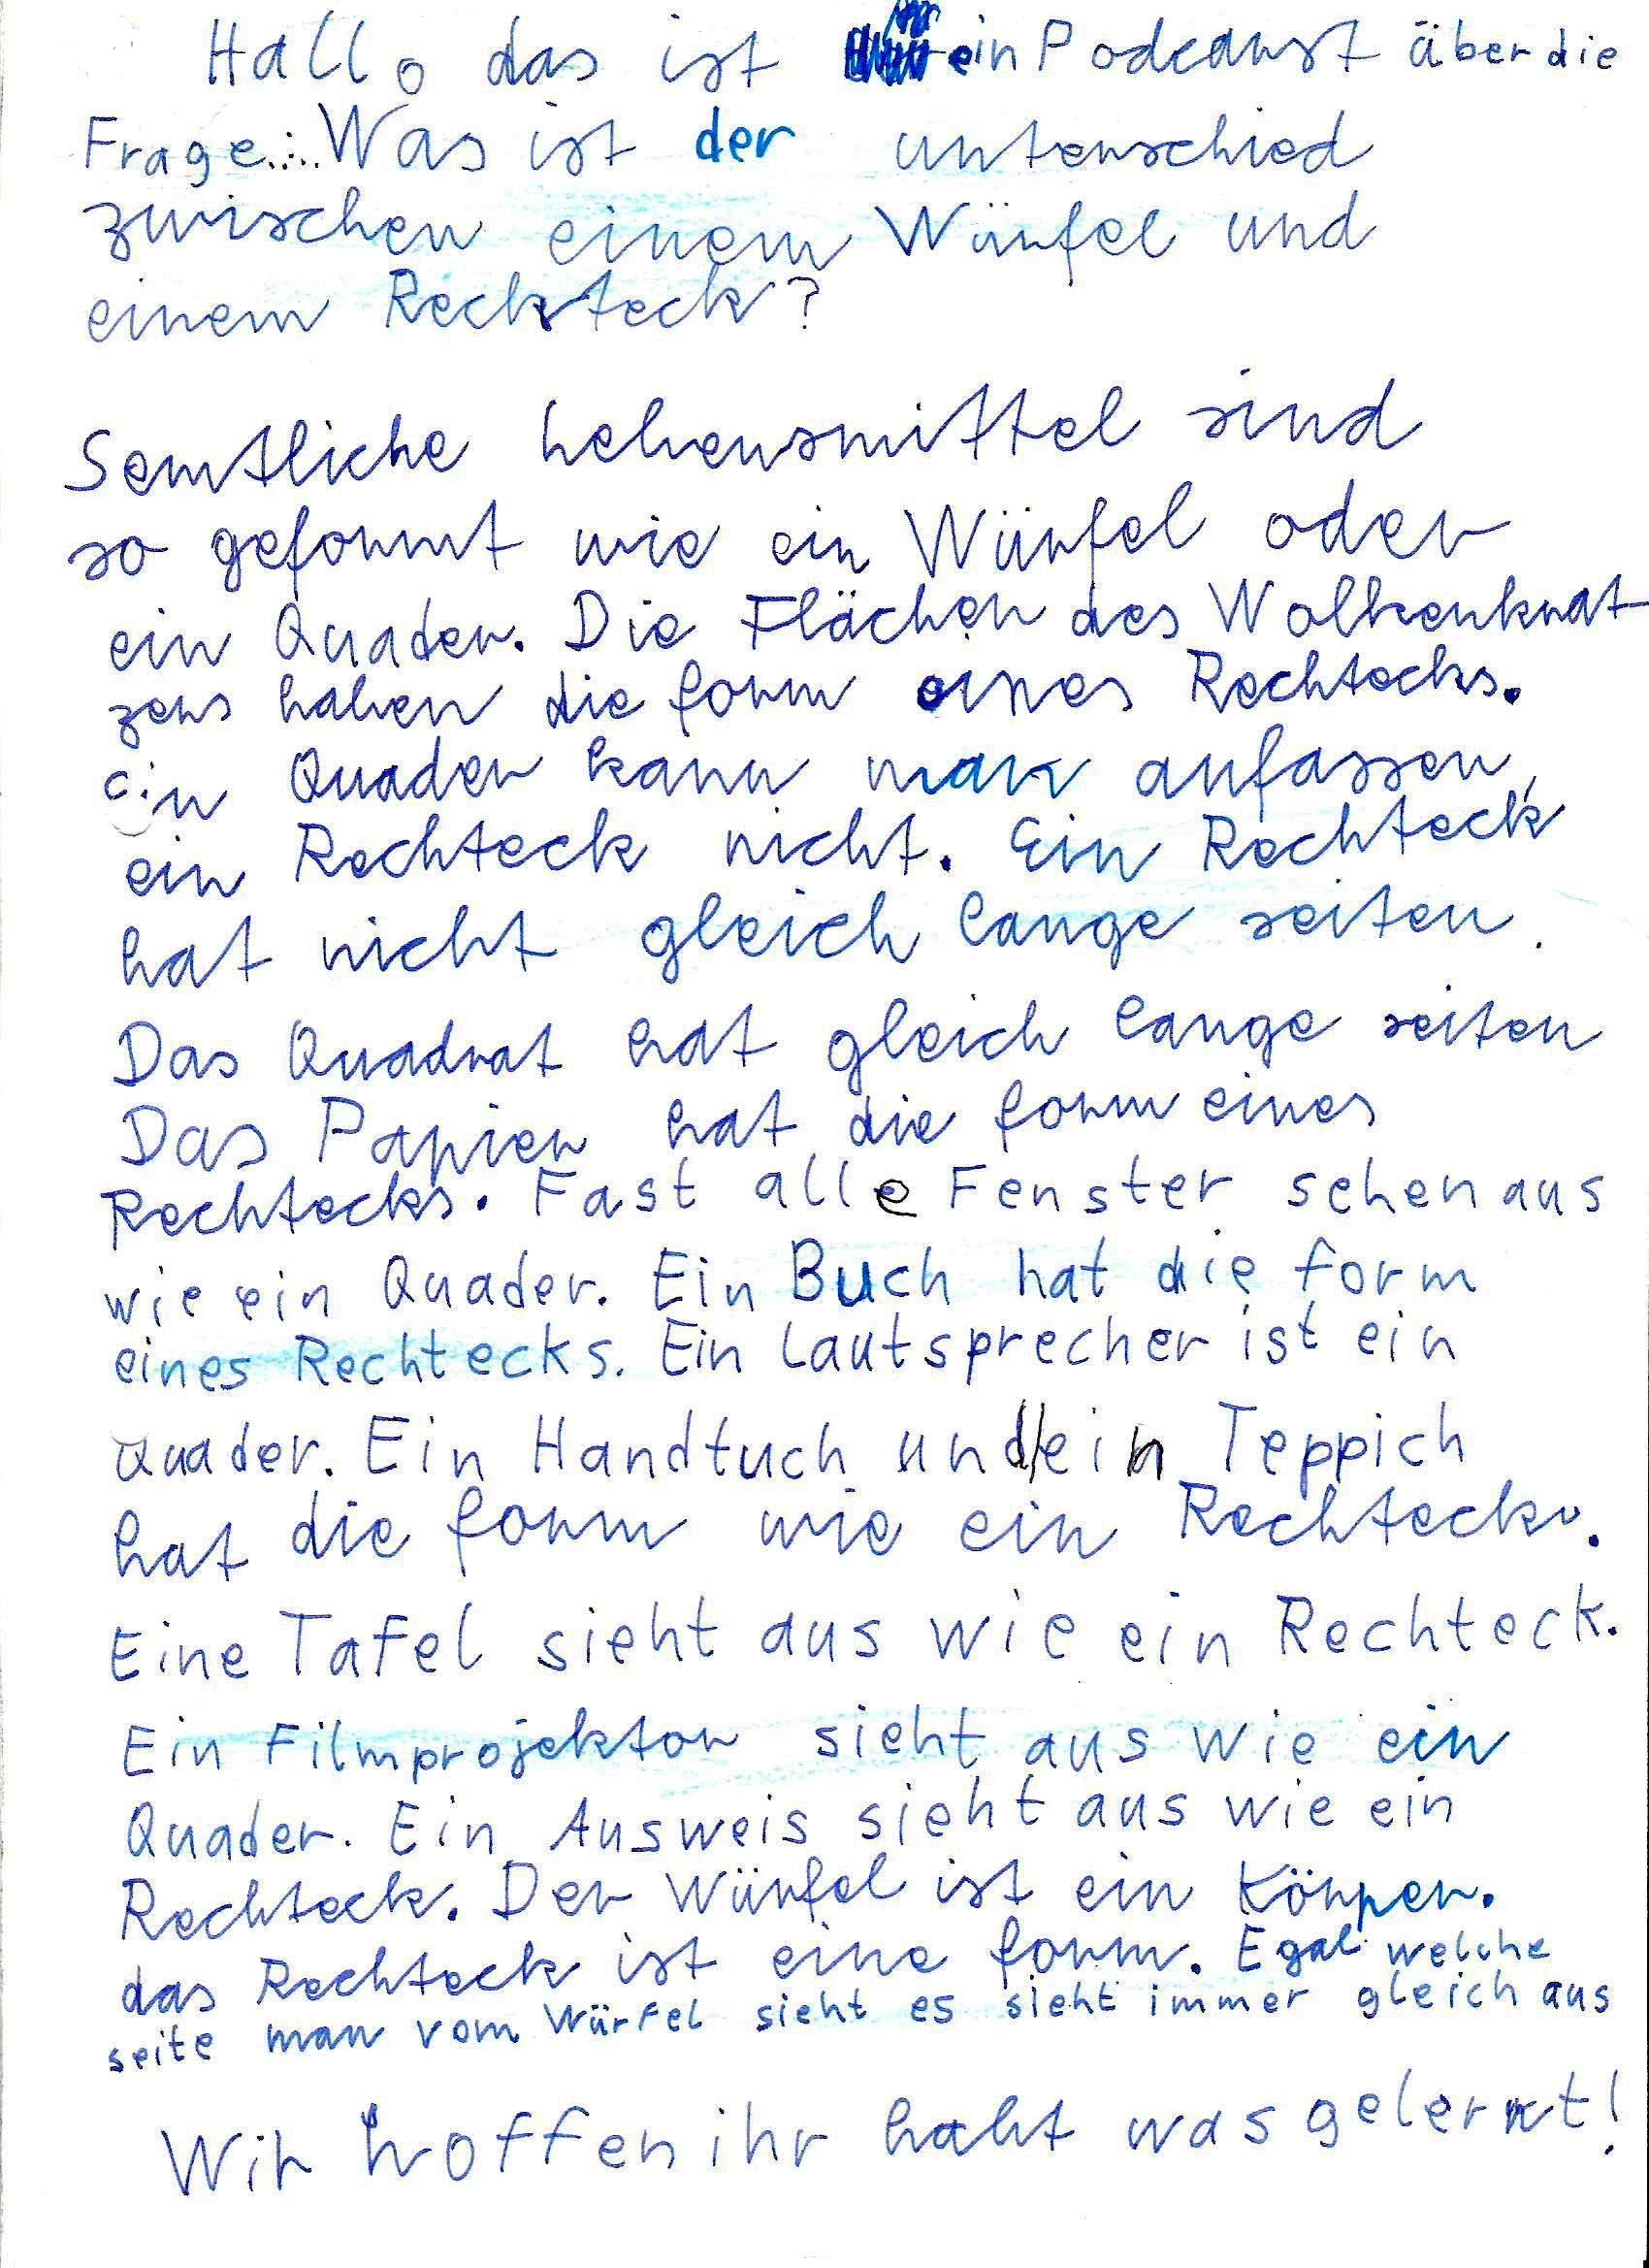 Hallo das ist ein Podcarst über die
Frage... Was ist der unterschied
zwischen einem Würfel und
einem Reckteck?
Semtliche lebensmittel sind
so geformt wie ein Würfel oder
ein Quader. Die Flächen des Wolkenkrat
zers haben die form eines Rechtecks.
ein Quader kann man anfassen,
ein Rechteck nicht. Ein Rechteck
hat nicht gleich lange seiten.
Das Quadrat hat gleich lange seiten
Das Papier hat die form eines
Rechtecks. Fast alle Fenster sehen aus
wie ein Quader. Ein Buch hat die form
eines Rechtecks. Ein Lautsprecher ist ein
Quader. Ein Handtuch und ein Teppich
hat die form wie ein Rechteck.
Eine Tafel sieht aus wie ein Rechteck.
Ein Filmprojektor sieht aus wie ein
Quader. Ein Ausweis sieht aus wie ein
Rechteck. Der Würfel ist ein Körper.
das Rechteck ist eine form. Egal welche
seite man vom Würfel sieht es sieht immer gleich aus
Wir hoffen ihr habt was gelernt!